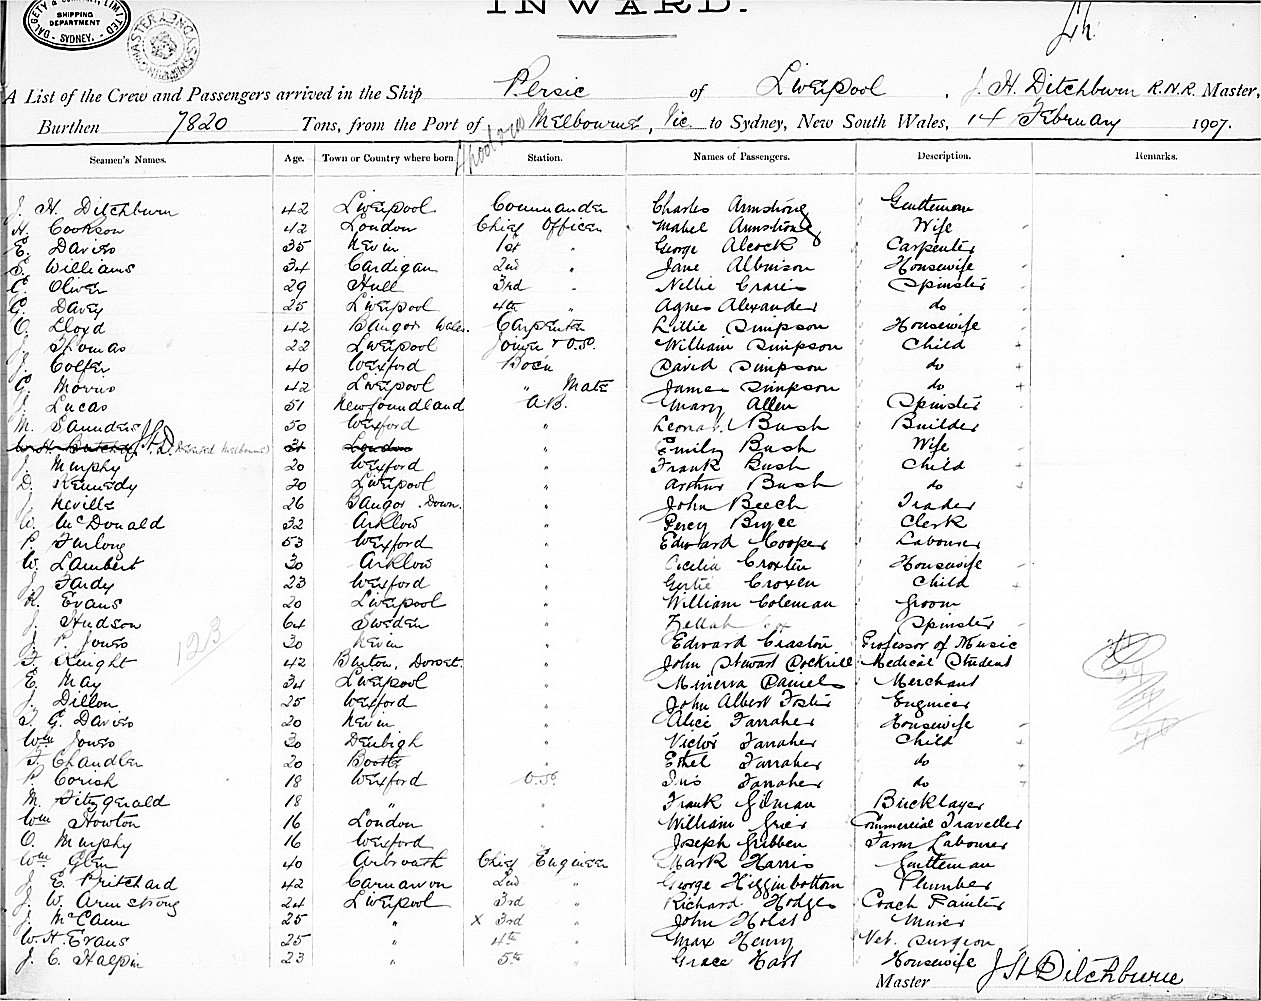 INWARD.
SHIPPING DEPARTMENT SYDNEY.
A List of the Crew and Passengers arrived in the Ship Persic of Liverpool, J. H. Ditchburn R.N.R. Master,
Burthen 7820 Tons, from the Port of Melbourne, Vic. to Sydney, New South Wales, 14 February 1907.
Seamen's Names. Age. Town or Country where born Station. Names of Passengers. Description. Remarks.
J. H. Ditchburn 42 Liverpool Commander Charles Armstrong Gentleman
H. Cookson 42 London Chief Officer Mabel Armstrong Wife
E. Davies 35 Nevin 1st " George Alcock Carpenter
E. Williams 34 Cardigan 2nd " Jane Albinson Housewife
C. Oliver 29 Hull 3rd " Nellie Spinster
G. Davey 25 Liverpool 4th " Agnes Alexander do
O. Lloyd 42 Bangor Wales. Carpenter Lillie Simpson Housewife
J. Thomas 22 Liverpool Joiner & O.S. William Simpson Child
J. Colfer 40 Wexford Bos'n David Simpson do
G. Morris 42 Liverpool " Mate James Simpson do
J. Lucas 51 Newfoundland A.B. Mary Allen Spinster
M. Saunders 50 Wexford " Bush Builder
W. H. J.H.D. Deserted Melbourne) 31 London Emily Bush Wife
J. Murphy 20 Wexford " Frank Bush Child
D. Kennedy 20 Liverpool " Arthur Bush do
J. Neville 26 Bangor. Down. " John Beech Trader
W. McDonald 32 Arklow " Percy Bryce Clerk
P. Furlong 53 Wexford " Edward Cooper Labourer
W. Lambert 30 Arklow " Cecilia Croxten Housewife
J. Fardy 23 Wexford " Gertie Croxen Child
R. Evans 20 Liverpool " William Coleman Groom
J. Hudson 64 Sweden " Zellah Cox Spinster
J. P. Jones 30 Nevin " Edward Craston Professor of Music
F. Knight 42 Burton, Dorset. " John Stewart Cockrill Medical Student
E. May 34 Liverpool " Minerva Daniels Merchant
J. Dillon 25 Wexford " John Albert Foster Engineer
T. G. Davies 20 Nevin " Alice Farraher Housewife
Wm Jones 30 Denbigh " Victor Farraher Child
F. Chandler 20 Bootle " Ethel Farraher do
P. Corish 18 Wexford O.S. Iris Farraher do
M. Fitzgerald 18 " " Frank Gilman Bricklayer
Wm Howton 16 London " William Grier Commercial Traveller
O. Murphy 16 Wexford " Joseph Gribben Farm Labourer
Wm Glen 40 Arbroath Chief Engineer Mark Harris Gentleman
J. E. Pritchard 42 Carnarvon 2nd " George Higginbottom Plumber
J. W. Armstrong 24 Liverpool 3rd " Richard Hodges Coach Painter
J. McCann 25 " X 3rd " John Holst Miner
W. H. Evans 25 " 4th " Max Henry Vet. Surgeon
J. C. Halpin 23 " 5th " Grace Hart Housewife
123
Master J H Ditchburn